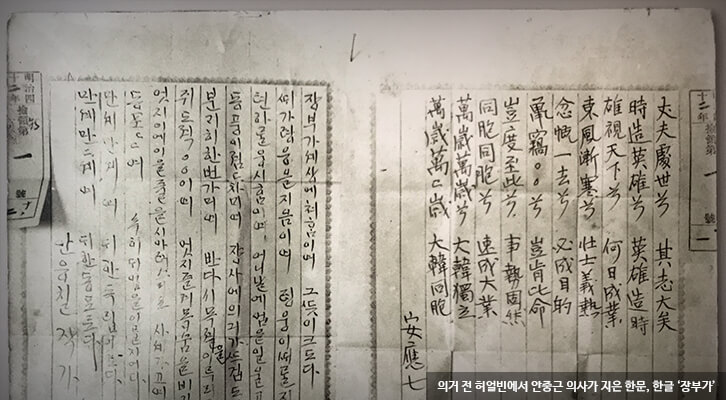 明治四十二年
押領第
一
號ノ一
丈夫處世兮 其志大矣
時造英雄兮 英雄造時
雄視天下兮 何日成業
東風漸寒兮 壯士義熱
念慨一去兮 必成目的
鼠窃○○兮 豈肯比命
豈度至此兮 事勢固然
同胞同胞兮 速成大業
萬歲萬歲兮 大韓獨立
萬歲萬々歲 大韓同胞
安應七
장부가세상에쳐함이여 그뜻이크도다
령웅을지음이여 령웅이
텬하를웅시함이여 어니날에업을일울고
동풍이졈드차미여 쟝사에의긔가
분긔히한번가미여 반다시목젹을이루
쥐도젹○○이여 엇지즐겨목숨을비
엇지이에이를줄을시아려스리요 사셰가고
동포동포여 속히대업을이룰지어다
만세만세여 대한독립이로다
만세만만세여 대한동포로다
안응칠 작가
明治四十二年
押領第
一
號
의거 전 하얼빈에서 안중근 의사가 지은 한문, 한글 ‘장부가’